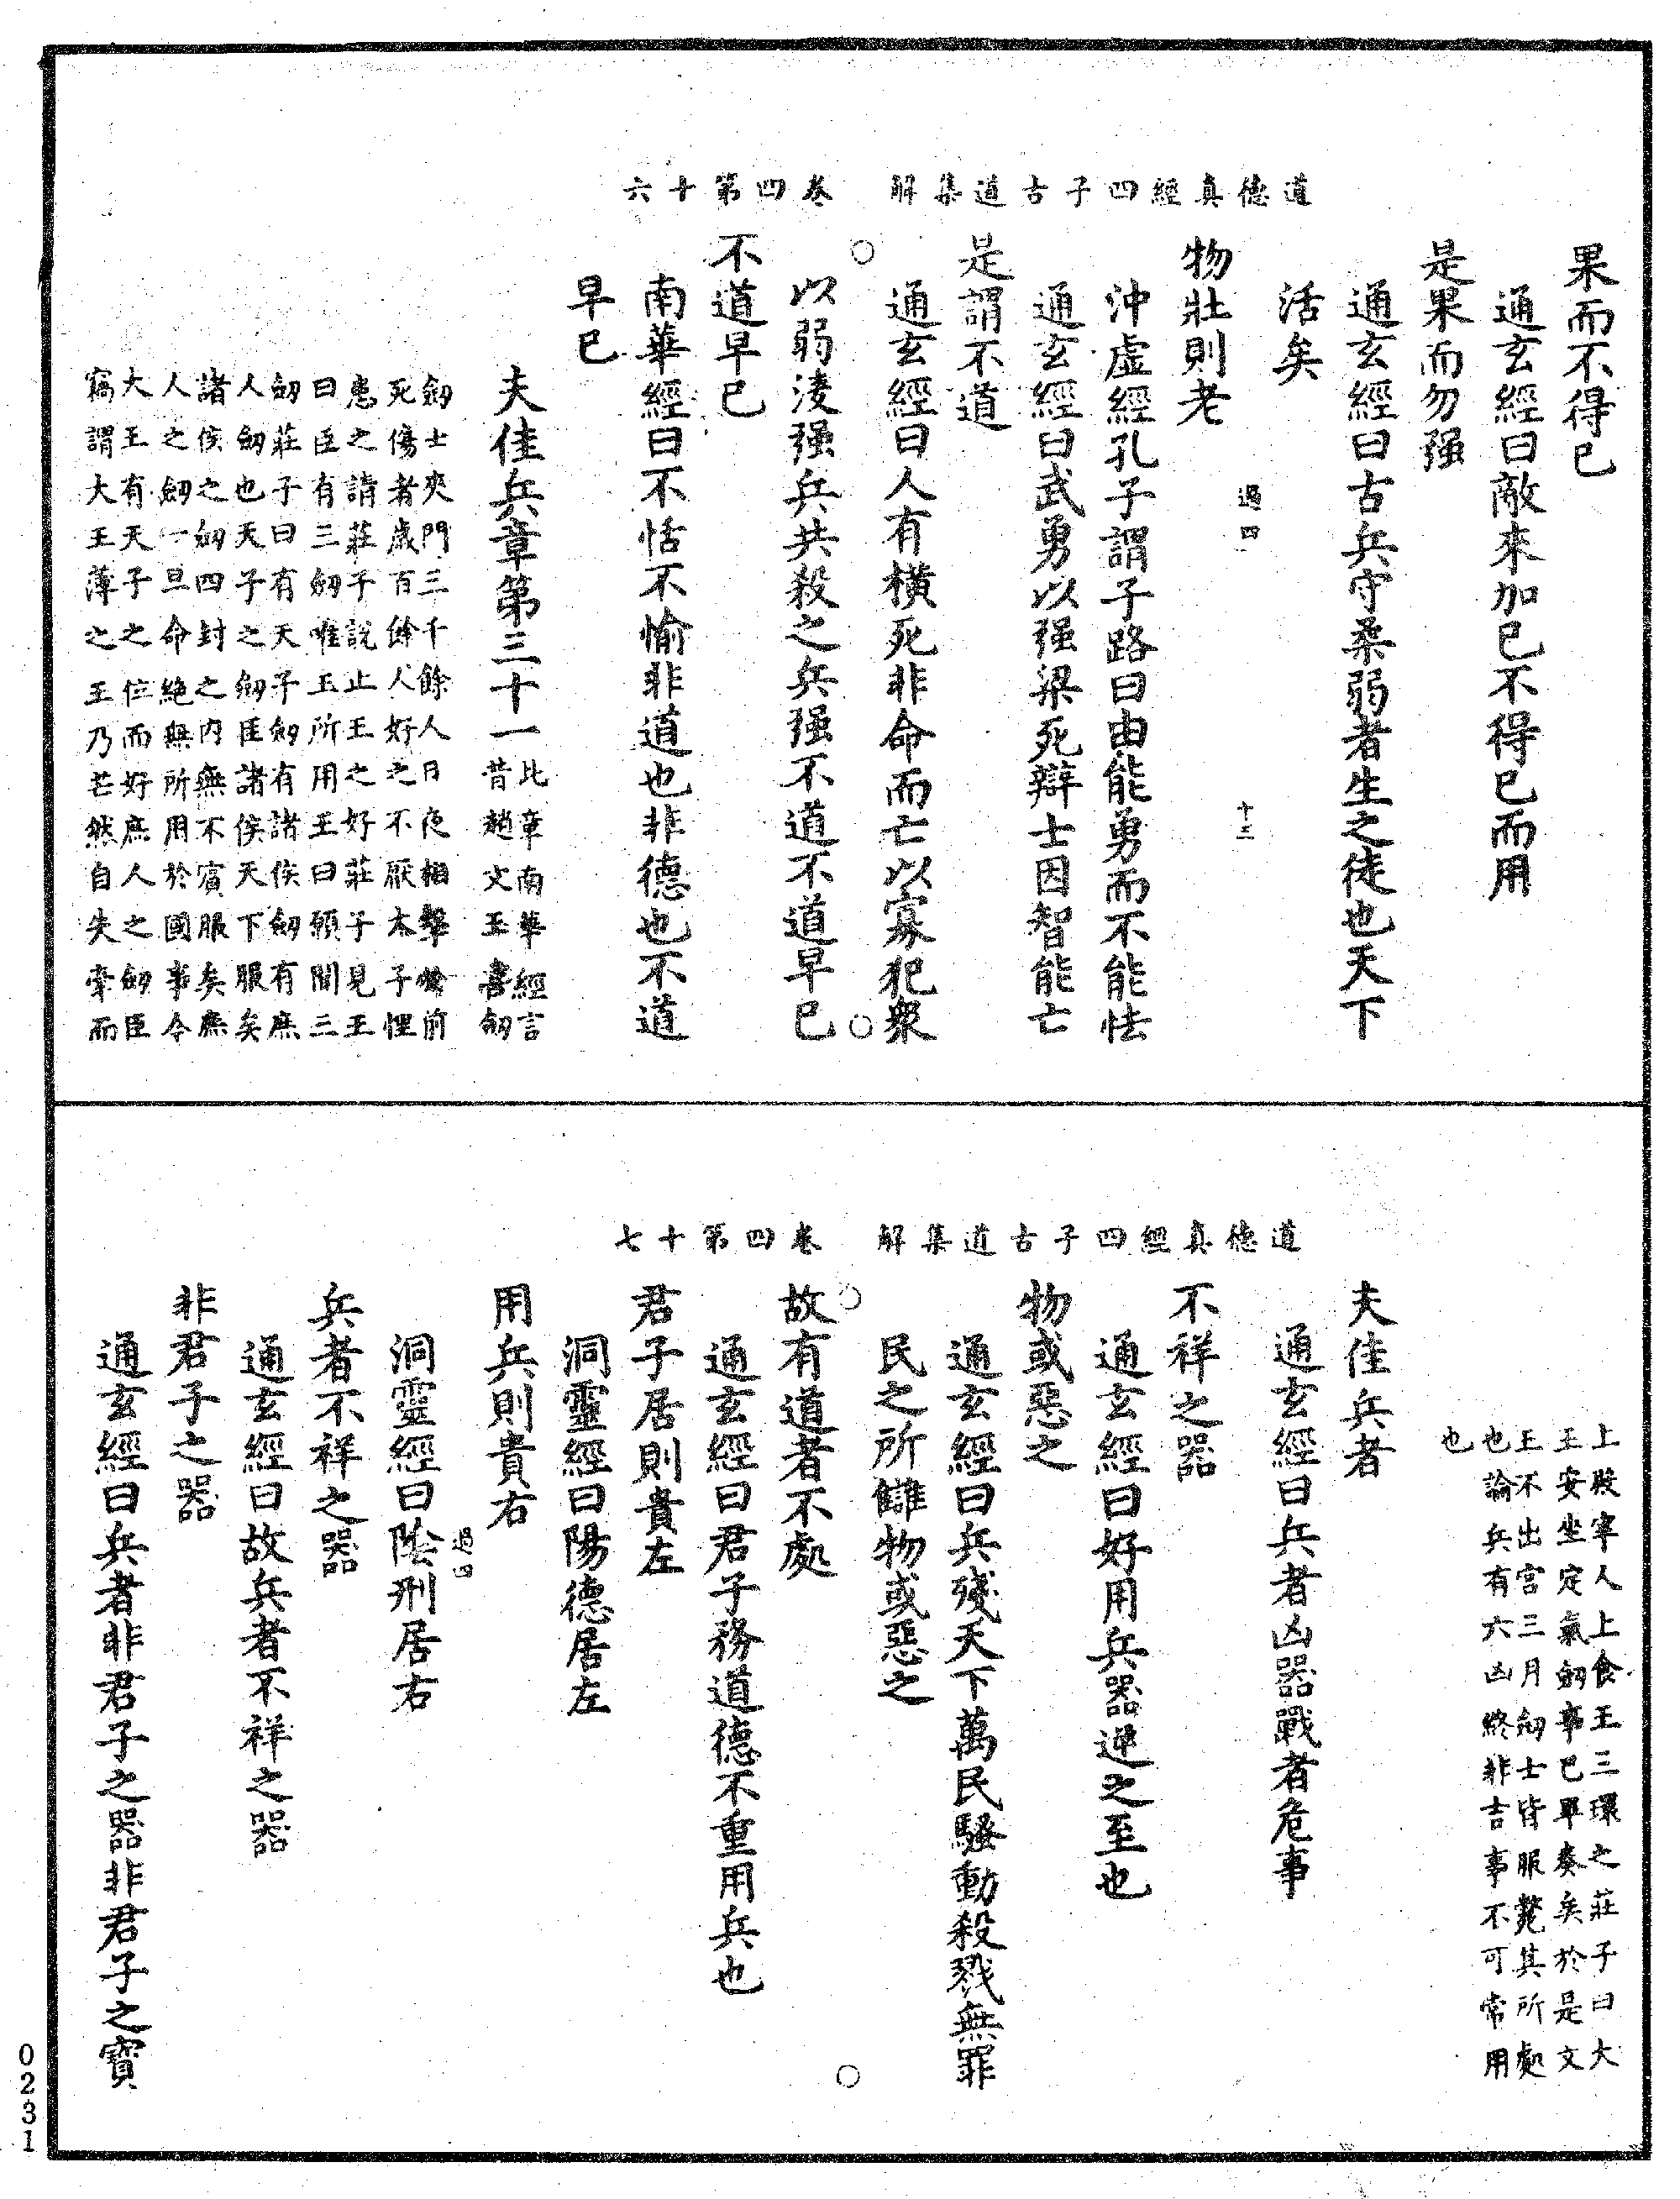 道德真經四子古道集解　卷四第十六
果而不得已
通玄經曰敵來加已不得已而用
是果而勿强
通玄經曰古兵守柔弱者生之徒也天下
活矣
物壯則老
過四　十三
沖虛經孔子謂子路曰由能勇而不能怯
通玄經曰武勇以强梁死辯士因智能亡
是謂不道
通玄經曰人有橫死非命而亡以寡犯衆
以弱淩强兵共殺之兵强不道不道早已
不道早已
南華經曰不恬不愉非道也非德也不道
早已
夫佳兵章第三十一
此章南華經言
昔趙文王喜劒
劒士夾門三千餘人日夜相擊於前
死傷者歲百餘人好之不厭太子悝
患之請莊子說止王之好莊子見王
曰臣有三劒唯王所用王曰願聞三
劒莊子曰有天子劒有諸侯劒有庶
人劒也天子之劒匡諸侯天下服矣
諸侯之劒四封之內無不賓服矣庶
人之劒一旦命絕無所用於國事今
大王有天子之位而好庶人之劒臣
竊謂大王薄之王乃芒然自失牽而
道德真經四子古道集解　卷四第十七
上殿宰人上食王三環之莊子曰大
王安坐定氣劒事已畢奏矣於是文
王不出宮三月劒士皆服斃其所處
也論兵有六凶終非吉事不可常用
也
夫佳兵者
通玄經曰兵者凶器戰者危事
不祥之器
通玄經曰好用兵器逆之至也
物或惡之
通玄經曰兵殘天下萬民騷動殺戮無罪
民之所讎物或惡之
故有道者不處
通玄經曰君子務道德不重用兵也
君子居則貴左
洞靈經曰陽德居左
用兵則貴右
過四
洞靈經曰陰刑居右
兵者不祥之器
通玄經曰故兵者不祥之器
非君子之器
通玄經曰兵者非君子之器非君子之寶
0231